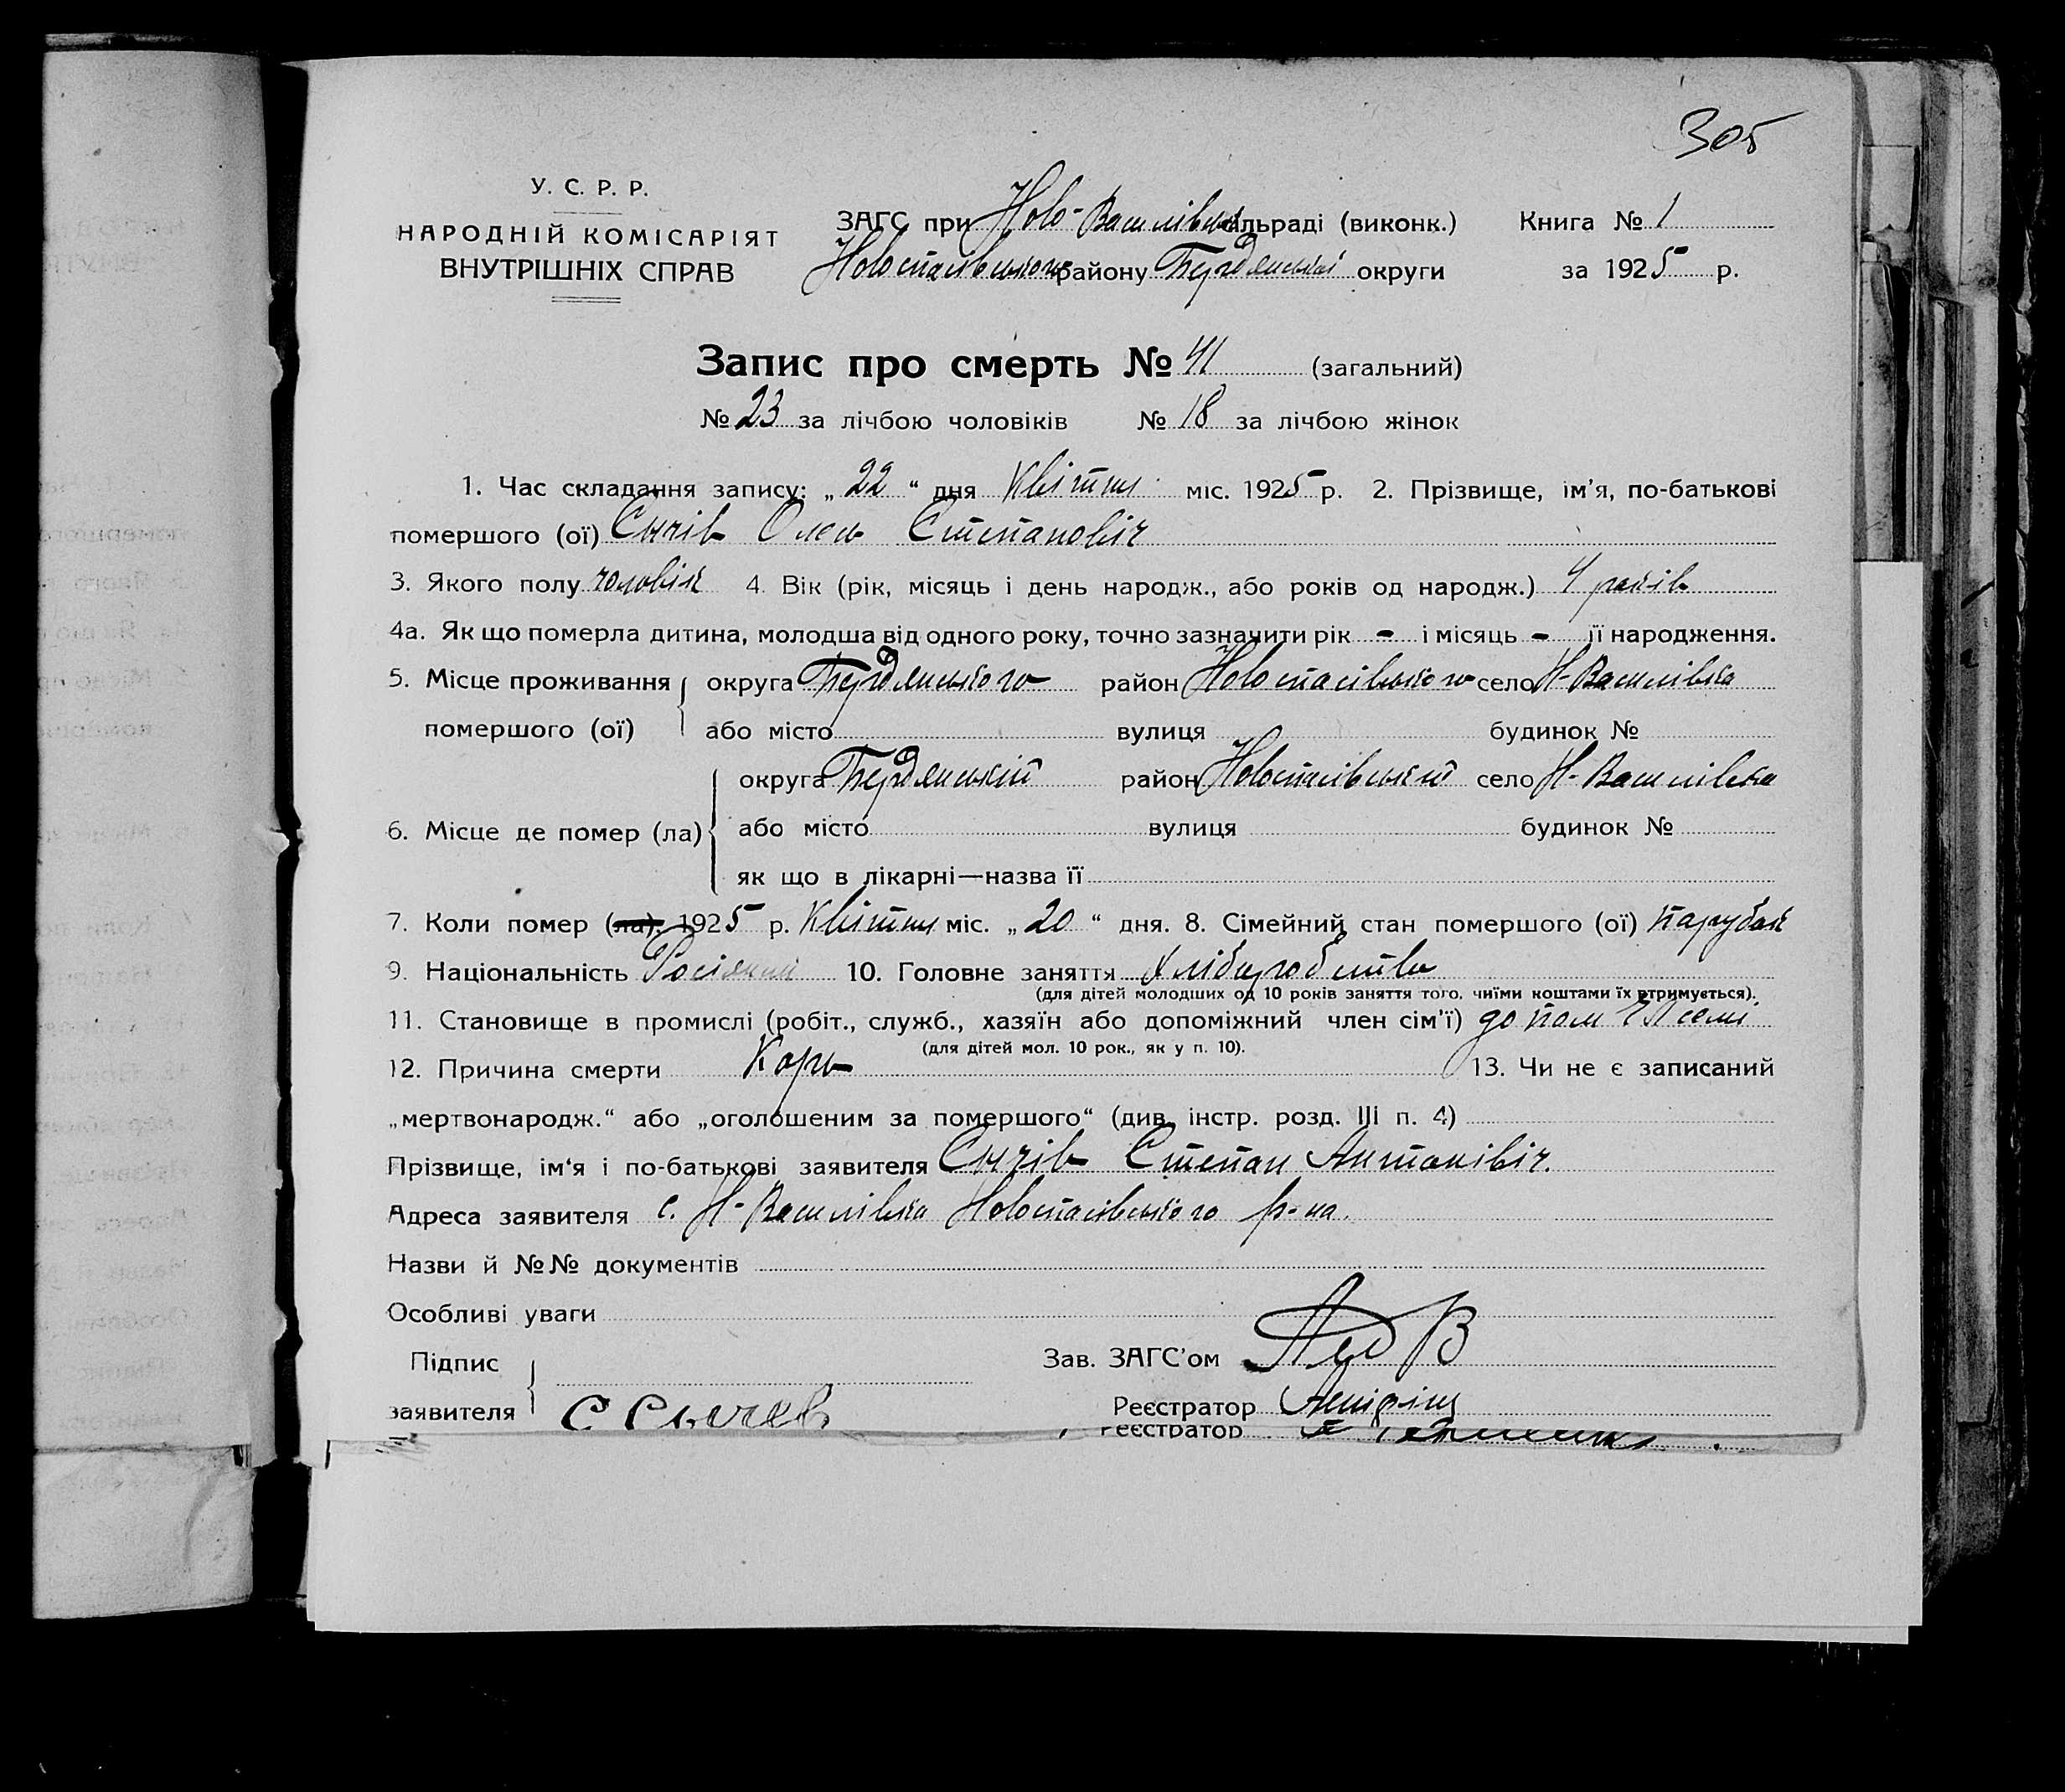 305
У. С. Р. Р.
НАРОДНІЙ КОМІСАРІЯТ
ВНУТРІШНІХ СПРАВ
ЗАГС при Ново-Василівськ сільраді (виконк.) Книга № 1
Новоспасівського району Бердянської округи за 1925 р.
Запис про смерть № 41 (загальний)
№ 23 за лічбою чоловіків № 18 за лічбою жінок
1. Час складання запису: „ 22 “ дня Квітня міс. 1925 р. 2. Прізвище, ім'я, по-батькові
помершого (ої) Сычів Олесь Степановіч
3. Якого полу чоловік 4. Вік (рік, місяць і день народж., або років од народж.) 4 років
4а. Як що померла дитина, молодша від одного року, точно зазначити рік - і місяць - її народження.
5. Місце проживання округа Бердянського район Новоспасівського село Н-Василівка
помершого (ої) або місто вулиця будинок №
округа Бердянській район Новоспасівський село Н-Василівка
6. Місце де помер (ла) або місто вулиця будинок №
як що в лікарні—назва її
7. Коли помер (ла). 1925 р. Квітня міс. „ 20 “ дня. 8. Сімейний стан помершого (ої) парубок
9. Національність 10. Головне заняття Хліборобство
(для дітей молодших од 10 років заняття того, чиїми коштами їх втримується).
11. Становище в промислі (робіт., служб., хазяїн або допоміжний член сім'ї) допом чл семі
(для дітей мол. 10 рок., як у п. 10).
12. Причина смерти Корь 13. Чи не є записаний
„мертвонародж.“ або „оголошеним за помершого“ (див. інстр. розд. III п. 4)
Прізвище, ім'я і по-батькові заявителя Сычів Степан Антонівіч.
Адреса заявителя с. Н-Василівка Новоспасівського р-на.
Назви й №№ документів
Особливі уваги
Підпис
заявителя С Сычев
Зав. ЗАГС'ом
Реєстратор
Реєстратор